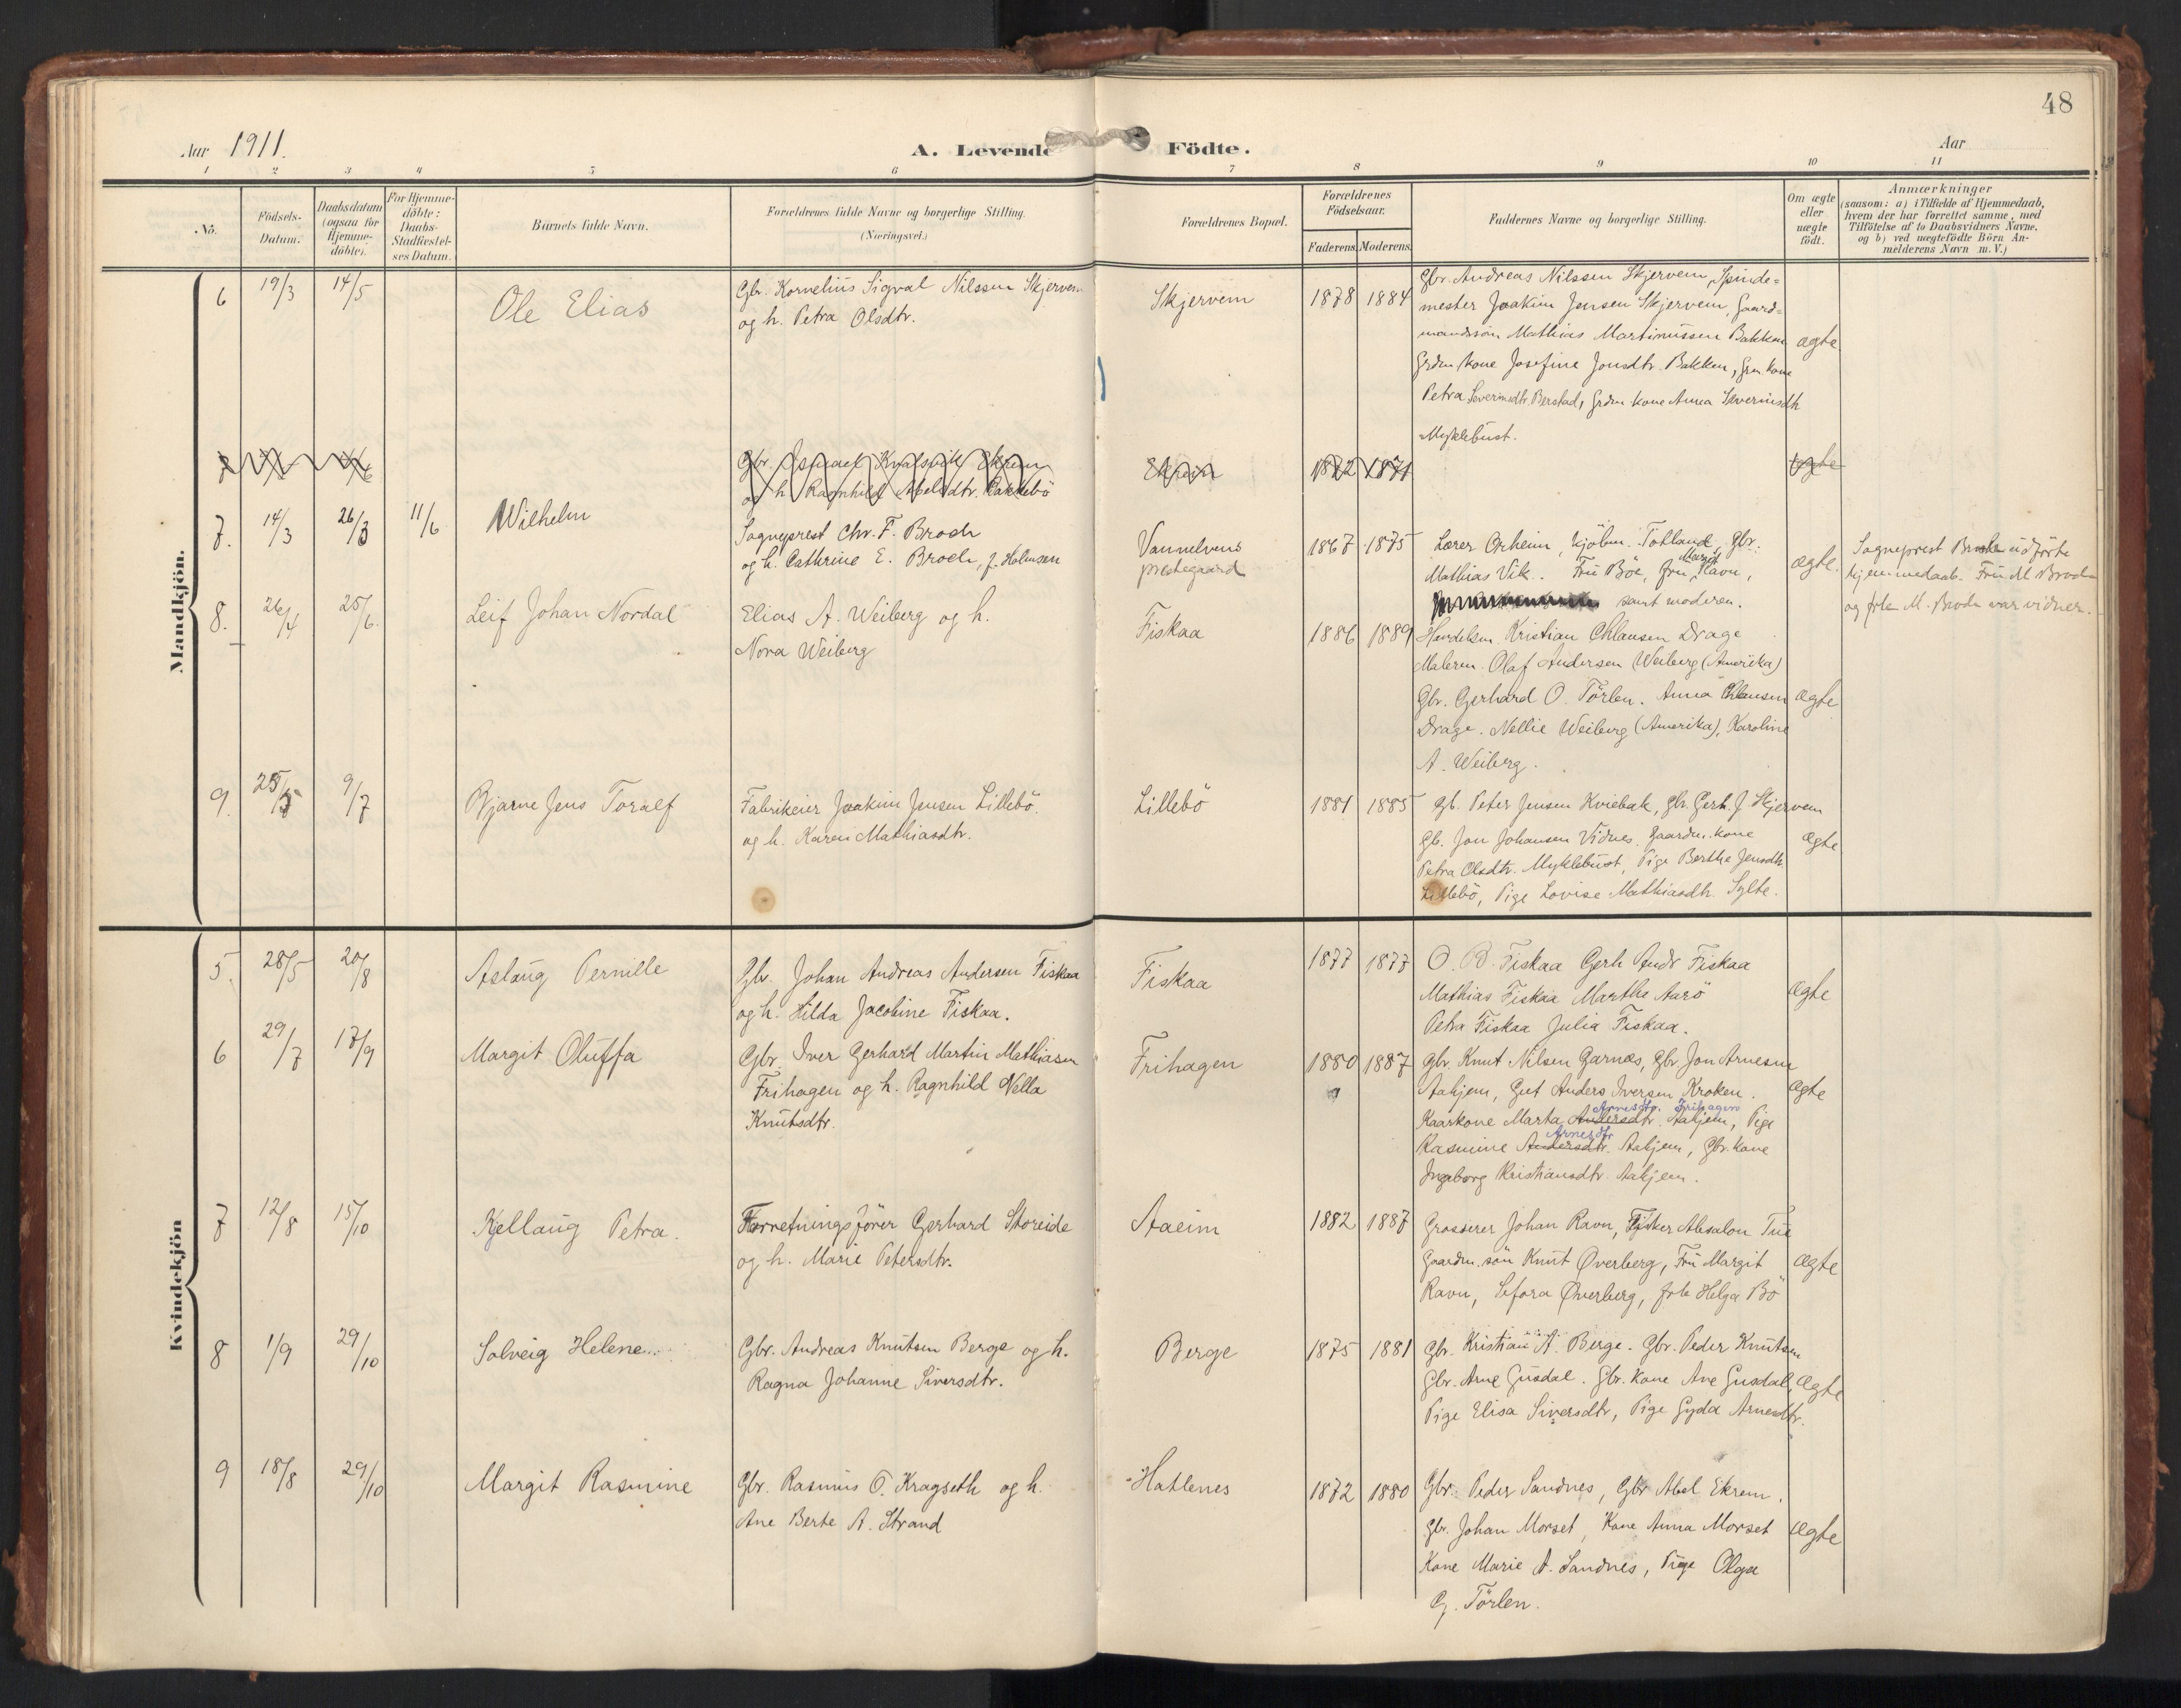 48
Aar 1911.
A. Levende Födte.
Aar
1 2 3 4 5 6 7 8 9 10 11
No.
Födsels-
Datum.
Daabsdatum
(ogsaa for
Hjemme-
döbte).
For Hjemme-
döbte:
Daabs-
Stadfæstel-
ses Datum.
Barnets fulde Navn.
Forældrenes fulde Navne og borgerlige Stilling.
(Næringsvei.)
Forældrenes Bopæl.
Forældrenes
Födselsaar.
Faderens. Moderens.
Faddernes Navne og borgerlige Stilling.
Om ægte
eller
uægte
födt.
Anmærkninger
(saasom: a) i Tilfælde af Hjemmedaab,
hvem der har forrettet samme, med
Tilföielse af to Daabsvidners Navne,
og b) ved uægtefödte Börn An-
melderens Navn m. V.)
Mandkjön.
6 19/3 14/5 Ole Elias
Gbr. Kornelius Sigval Nilssen Skjervem
og h. Petra Olsdtr.
Skjervem 1878 1884
Gbr. Andreas Nilssen Skjervem, Spinde=
mester Joakim Jensen Skjervem, Gaard=
mandssön Mathias Martinussen Bakken
Grdm kone Josefine Jonsdtr. Bakken, Grm kone
Petra Severinsdtr. Berstad, Grdm. kone Anna Severinsdtr
Myklebust.
ægte
7
Gbr. Ismael Kvalsvik Ekrem
og h. Ragnhild Abelsdtr. Bakkebö
Ekrem 1872 1871
ægte
7. 14/3 26/3 11/6 Wilhelm
Sogneprest Chr. F. Broch
og h. Cathrine E. Broch, f. Holmsen
Vannelvens
prestegaard
1867 1875
Lærer Orheim, kjöbm. Totland, Gbr.
Mathias Vik. Fru Böe, Fru Margit Ravn,
samt moderen.
ægte.
Sogneprest Broch udförte
hjemmedaab. Fru M Broch
og frk. M. Broch var vidner.
8. 26/4 25/6. Leif Johan Nordal
Elias A. Weiberg og h.
Nora Weiberg
Fiskaa 1886 1889
Handelsm. Kristian Chlausen Drage
Malerm. Olaf Andersen Weiberg (Amerika)
Gbr. Gerhard O. Törlen. Anna Chlausen
Drage. Nellie Weiberg (Amerika), Karoline
A. Weiberg.
ægte
9. 25/5 9/7 Bjarne Jens Toralf
Fabrikeier Joakim Jensen Lillebö.
og h. Karen Mathiasdtr.
Lillebö 1881 1885
Gb. Peter Jensen Kviebak, Gbr. Gerh. J. Skjervem
Gb. Jon Johansen Vidnes. Gaardm. kone
Petra Olsdtr. Myklebust, Pige Berthe Jensdtr
Lillebö, Pige Lovise Mathiasdtr. Sylte.
ægte
Kvindekjön
5. 28/5 20/8 Aslaug Pernille
Gbr. Johan Andreas Andersen Fiskaa
og h. Hilda Jacobine Fiskaa.
Fiskaa 1877 1877
O. B. Fiskaa Gerh Andr Fiskaa
Mathias Fiskaa Marthe Aarö
Petra Fiskaa Julia Fiskaa.
ægte
6 29/7 17/9 Margit Oluffa
Gbr. Iver Gerhard Martin Mathiasen
Frihagen og h. Ragnhild Nella
Knutsdtr.
Frihagen 1880 1887
Gbr. Knut Nilsen Garnæs, Gbr. Jon Arnesen
Aahjem, Gut Anders Iversen Kroken.
Arnesdtr. Frihagen
Kaarkone Marta Andersdtr. Aahjem, Pige
Arnesdtr
Rasmine Andersdtr. Aahjem, Gbr. kone
Ingeborg Kristiansdtr. Aahjem.
ægte
7 12/8 15/10 Kjellaug Petra.
Forretningsförer Gerhard Storeide
og h. Marie Petersdtr.
Aaeim 1882 1887
Grosserer Johan Ravn, Fisker Absalon Tue
Gaardm. sön Knut Øverberg, Fru Margit
Ravn, Sefora Øverberg, frk Helga Bö
ægte
8 1/9 29/10 Solveig Helene
Gbr. Andreas Knutsen Berge og h.
Ragna Johanne Siversdtr.
Berge 1875 1881
Gbr. Kristian A. Berge. Gbr. Peder Knutsen
Gbr. Arne Gusdal. Gbr. kone Ane Gusdal,
Pige Elisa Siversdtr, Pige Gyda Arnesdtr.
ægte
9 18/8 29/10 Margit Rasmine
Gbr. Rasmus O. Kragseth og h.
Ane Berte A. Strand
Hatlenes 1872 1880
Gbr. Peder Sandnes, Gbr Abel Ekrem.
Gbr. Johan Morset, Kone Anna Morset
Kone Marie A. Sandnes, Pige Olga
G. Törlen.
ægte